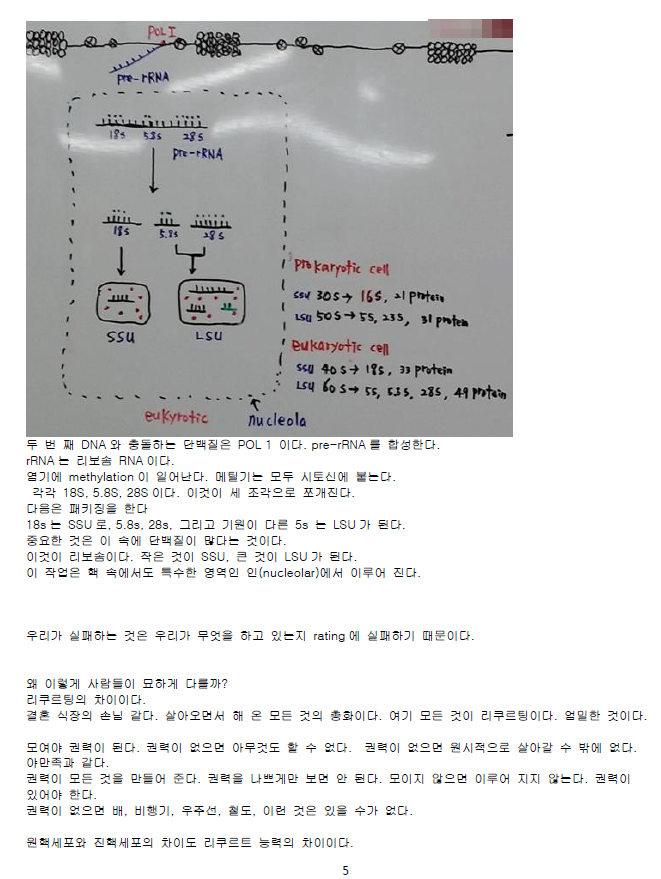 POL I
pre-rRNA
18s 5.8s 28s
pre-rRNA
18s 5.8s 28s
SSU LSU
eukyrotic nucleola
prokaryotic cell
SSU 30S → 16S, 21 protein
LSU 50S → 5S, 23S, 31 protein
eukaryotic cell
SSU 40S → 18S, 33 protein
LSU 60S → 5S, 5.8S, 28S, 49 protein
두 번 째 DNA와 충돌하는 단백질은 POL 1 이다. pre-rRNA를 합성한다.
rRNA는 리보솜 RNA이다.
염기에 methylation이 일어난다. 메틸기는 모두 시토신에 붙는다.
각각 18S, 5.8S, 28S이다. 이것이 세 조각으로 쪼개진다.
다음은 패키징을 한다
18s는 SSU로, 5.8s, 28s, 그리고 기원이 다른 5s 는 LSU가 된다.
중요한 것은 이 속에 단백질이 많다는 것이다.
이것이 리보솜이다. 작은 것이 SSU, 큰 것이 LSU가 된다.
이 작업은 핵 속에서도 특수한 영역인 인(nucleolar)에서 이루어 진다.
우리가 실패하는 것은 우리가 무엇을 하고 있는지 rating에 실패하기 때문이다.
왜 이렇게 사람들이 묘하게 다를까?
리쿠르팅의 차이이다.
결혼 식장의 손님 같다. 살아오면서 해 온 모든 것의 총화이다. 여기 모든 것이 리쿠르팅이다. 엄밀한 것이다.
모여야 권력이 된다. 권력이 없으면 아무것도 할 수 없다. 권력이 없으면 원시적으로 살아갈 수 밖에 없다.
야만족과 같다.
권력이 모든 것을 만들어 준다. 권력을 나쁘게만 보면 안 된다. 모이지 않으면 이루어 지지 않는다. 권력이
있어야 한다.
권력이 없으면 배, 비행기, 우주선, 철도, 이런 것은 있을 수가 없다.
원핵세포와 진핵세포의 차이도 리쿠르트 능력의 차이이다.
5